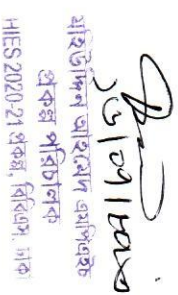 মহিউদ্দিন আহমেদ এমপিএইচ
প্রকল্প পরিচালক
HIES 2020-21 প্রকল্প, বিবিএস, ঢাকা